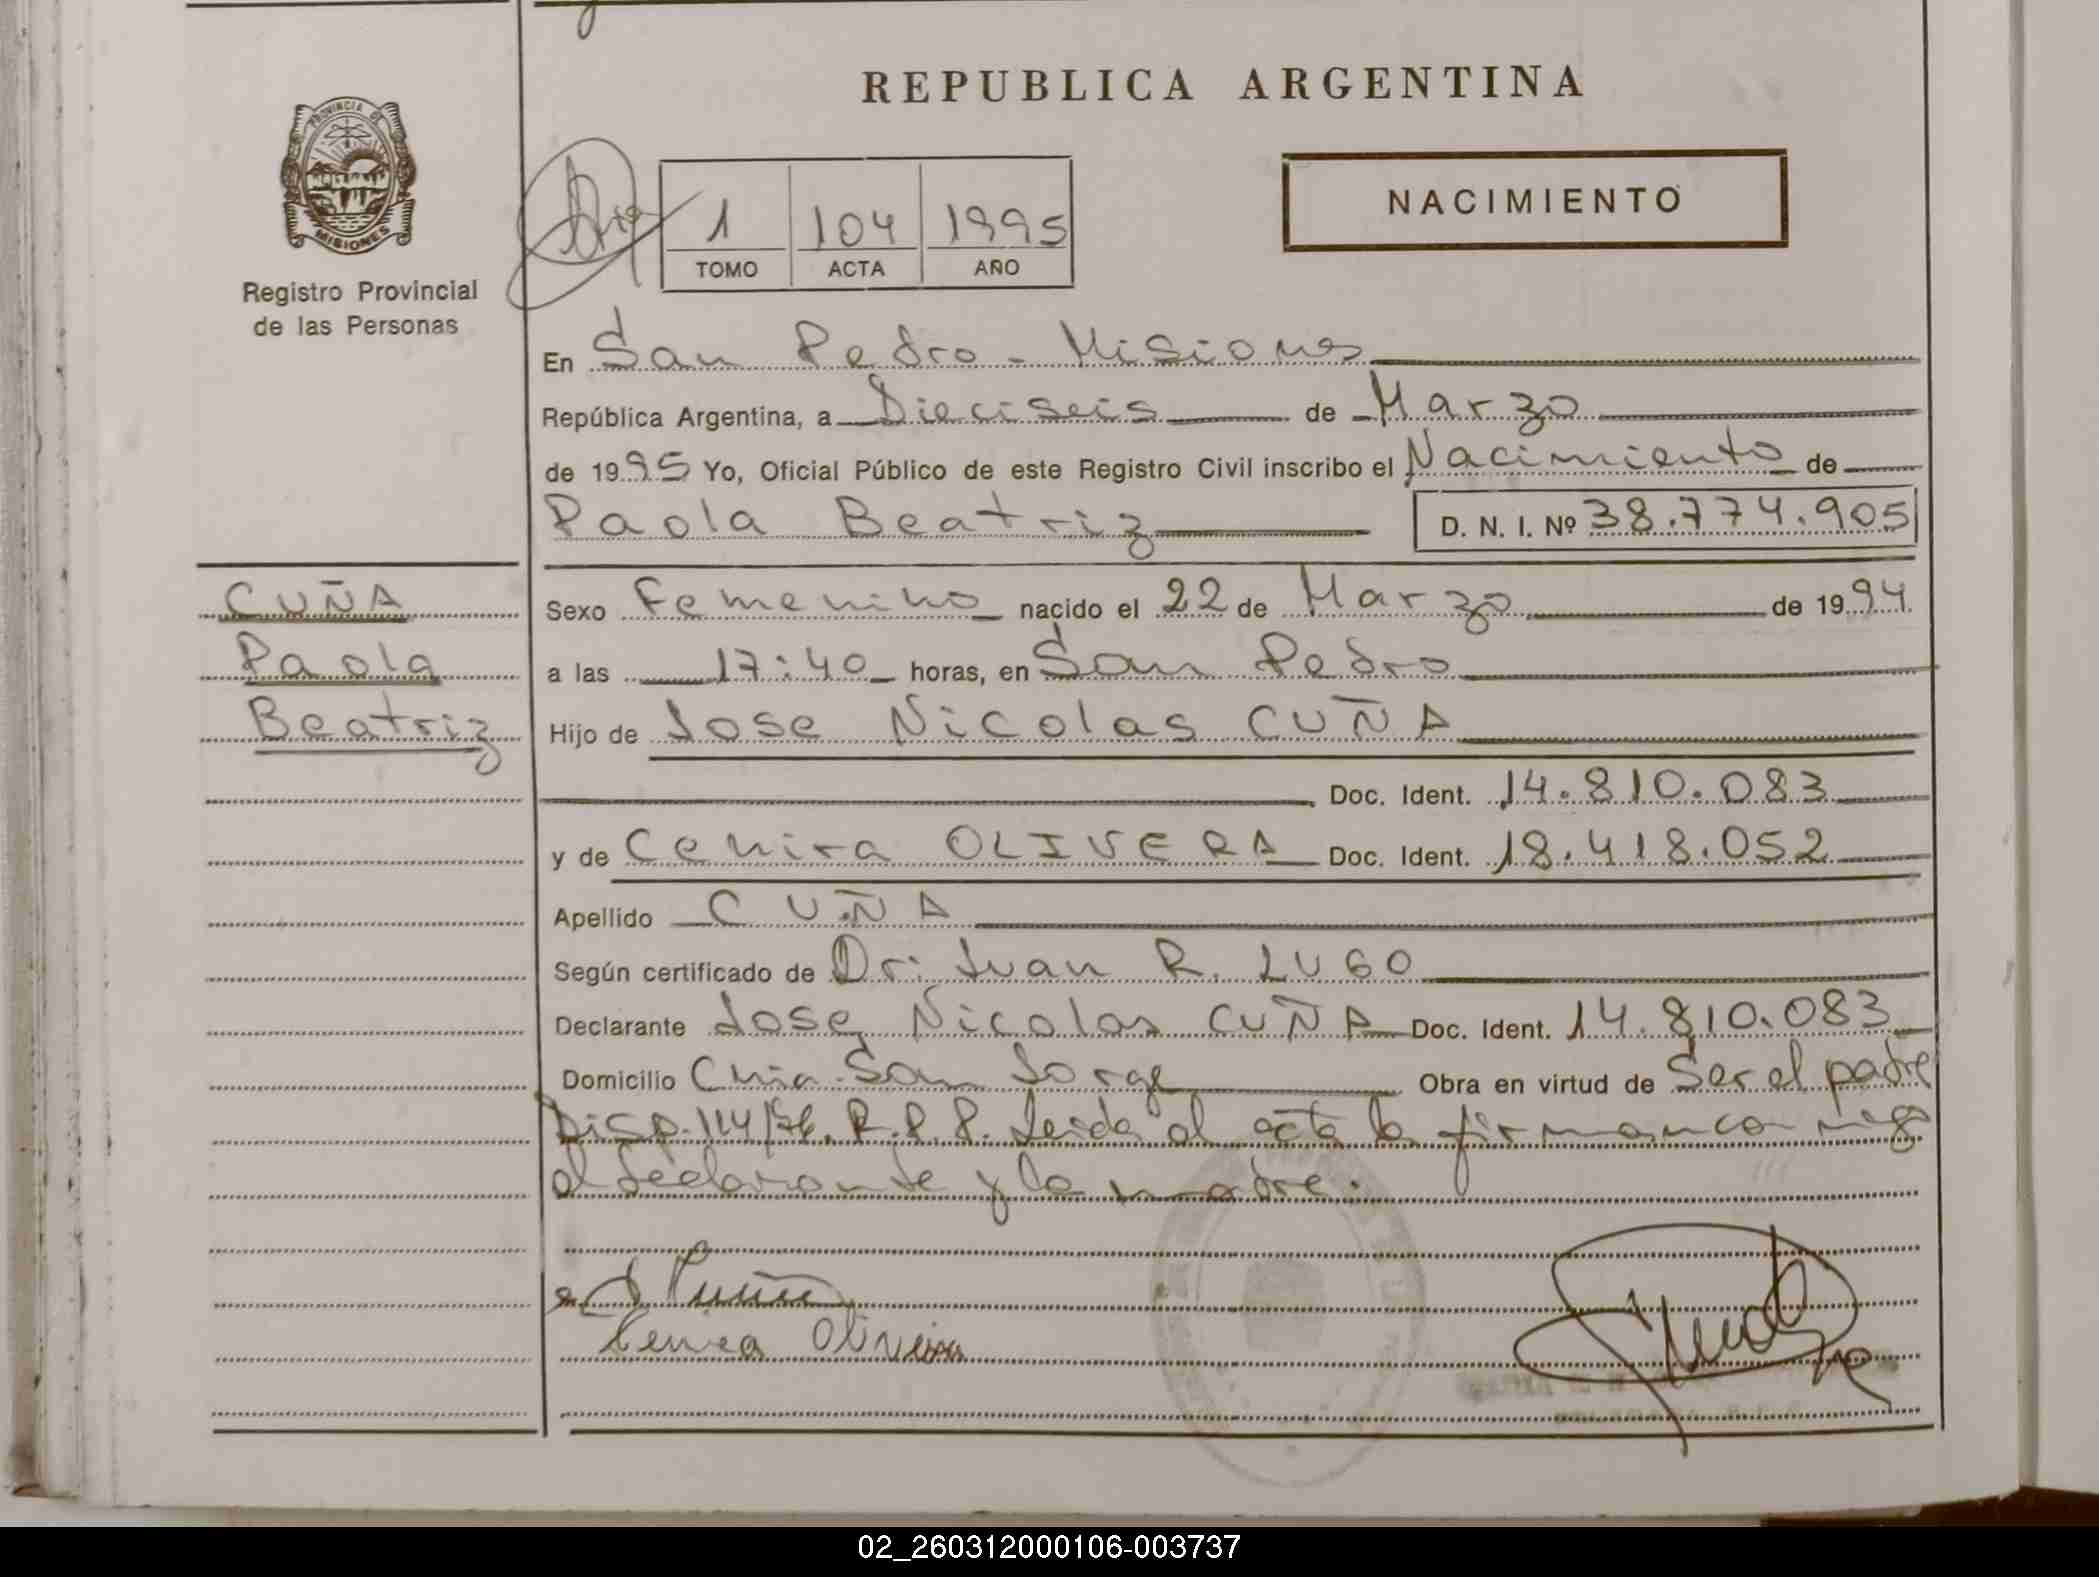 REPUBLICA ARGENTINA
PROVINCIA DE
MISIONES
Registro Provincial
de las Personas
1 104 1995
TOMO ACTA AÑO
NACIMIENTO
En San Pedro - Misiones
República Argentina, a Dieciseis de Marzo
de 1995 Yo, Oficial Público de este Registro Civil inscribo el Nacimiento de
Paola Beatriz D. N. I. Nº 38.774.905
CUÑA
Paola
Beatriz
Sexo Femenino nacido el 22 de Marzo de 1994
a las 17:40 horas, en San Pedro
Hijo de Jose Nicolas CUÑA
Doc. Ident. 14.810.083
y de Cenira OLIVERA Doc. Ident. 18.418.052
Apellido CUÑA
Según certificado de Dr: Juan R. LUGO
Declarante Jose Nicolas CUÑA Doc. Ident. 14.810.083
Domicilio Cnia. San Jorge Obra en virtud de Ser el padre
Disp. 114/76. R.P.P. Leida el acta la firman conmigo
el declarante y la madre.
Cenira Oliveira
02_260312000106-003737